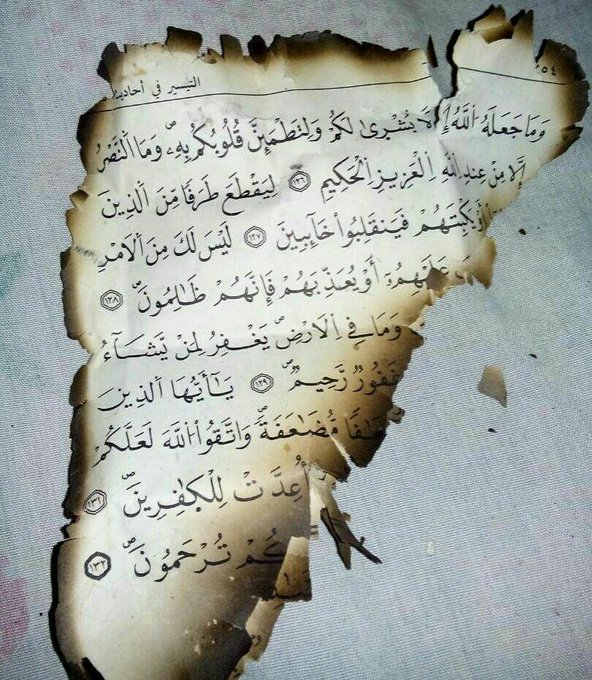 ٥٤ التيسير في أحاديث
وَمَا جَعَلَهُ اُ۬للَّهُ إِلَّا بُشْرَىٰ لَكُمْ وَلِتَطْمَئِنَّ قُلُوبُكُم بِهِۦ وَمَا اَ۬لنَّصْرُ
إِلَّا مِنْ عِندِ اِ۬للَّهِ اِ۬لْعَزِيزِ اِ۬لْحَكِيمِ ١٢٦ لِيَقْطَعَ طَرَفًا مِّنَ اَ۬لَّذِينَ
أَوْ يَكْبِتَهُمْ فَيَنقَلِبُوا۟ خَآئِبِينَ ١٢٧ لَيْسَ لَكَ مِنَ اَ۬لَامْرِ
عَلَيْهِمُۥٓ أَوْ يُعَذِّبَهُمْ فَإِنَّهُمْ ظَٰلِمُونَ ١٢٨
وَمَا فِي اِ۬لَارْضِ يَغْفِرُ لِمَنْ يَّشَآءُ
غَفُورٌ رَّحِيمٌ ١٢٩ يَٰٓأَيُّهَا اَ۬لَّذِينَ
مُّضَٰعَفَةً وَاتَّقُوا۟ اُ۬للَّهَ لَعَلَّكُمْ
أُعِدَّتْ لِلْكَٰفِرِينَ ١٣١
تُرْحَمُونَ ١٣٢